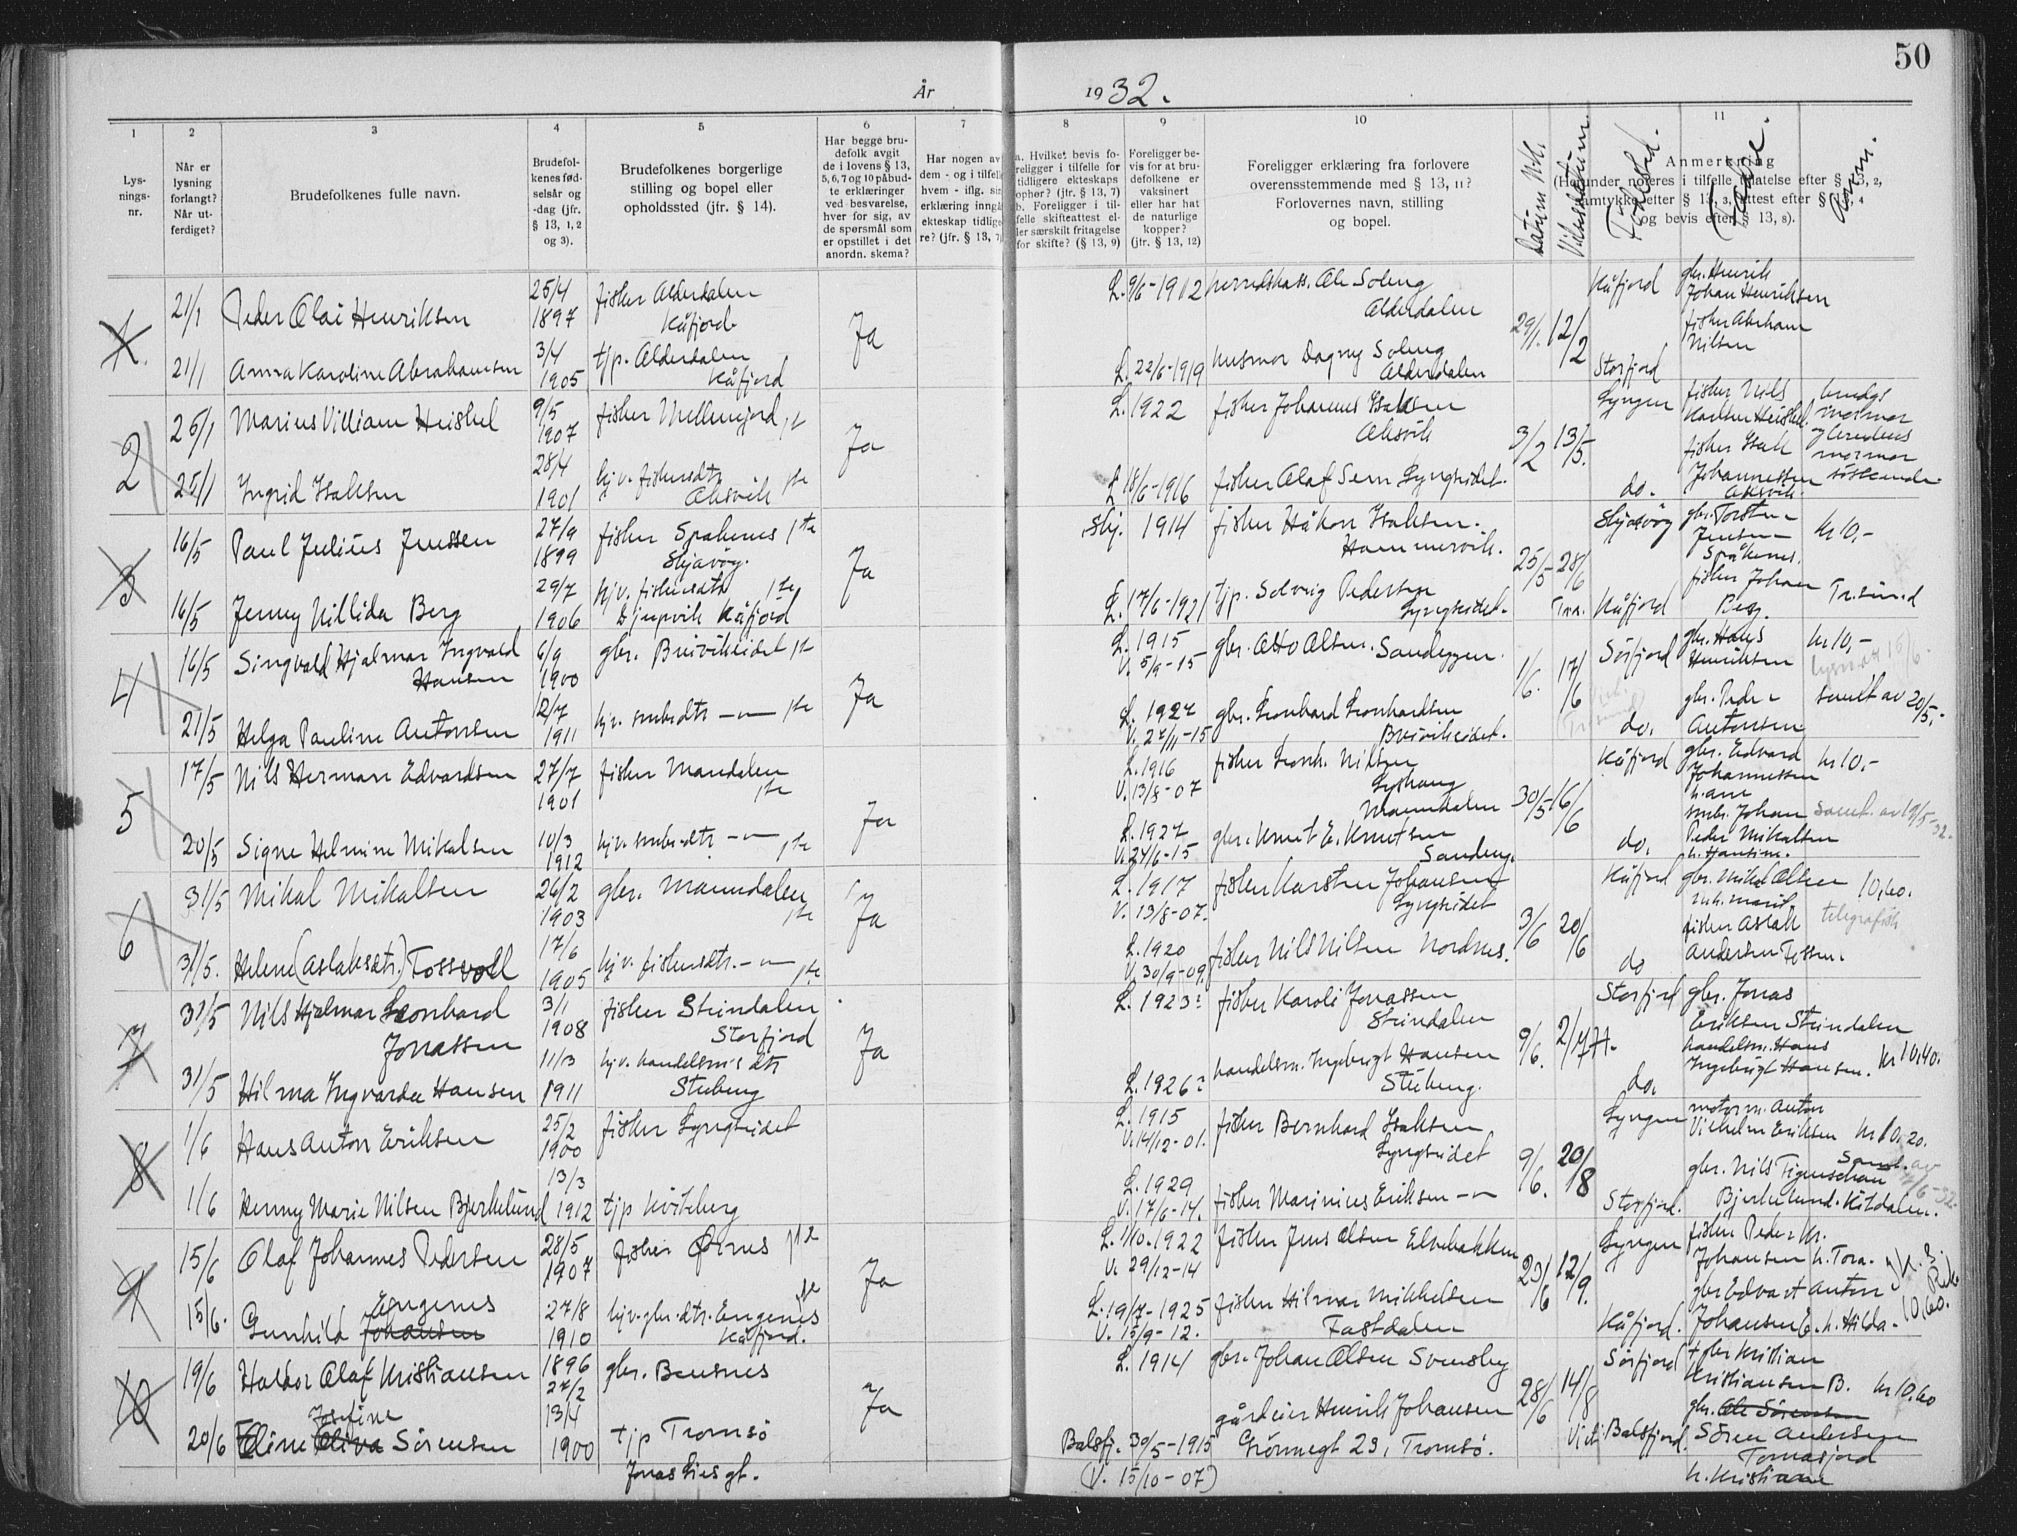 50
År 1932.
1 2 3 4 5 6 7 8 9 10 11
Lys-
nings-
nr.
Når er
lysning
forlangt?
Når ut-
ferdiget?
Brudefolkenes fulle navn.
Brudefol-
kenes fød-
selsår og
-dag (jfr.
§ 13, 1, 2
og 3).
Brudefolkenes borgerlige
stilling og bopel eller
opholdssted (jfr. § 14).
Har begge bru-
defolk avgit
de i lovens § 13,
5, 6, 7 og 10 påbud-
te erklæringer
ved besvarelse,
hver for sig, av
de spørsmål som
er opstillet i det
anordn. skema?
Har nogen av
dem - og i tilfelle
hvem - iflg. sin
erklæring inngå
ekteskap tidlige-
re? (jfr. § 13, 7
a. Hvilket bevis fo-
religger i tilfelle for
tidligere ekteskaps
ophør? (jfr. § 13, 7)
b. Foreligger i til-
felle skifteattest el-
ler særskilt fritagelse
for skifte? (§ 13, 9)
Foreligger be-
vis for at bru-
defolkene er
vaksinert
eller har hat
de naturlige
kopper?
(jfr. § 13, 12)
Foreligger erklæring fra forlovere
overensstemmende med § 13, 11?
Forlovernes navn, stilling
og bopel.
Datum Utst.
Vielsesdatum.
Fødested.
Fader.
Anm.
Anmerkning
(Herunder noteres i tilfelle tillatelse efter § 13, 2,
samtykke efter § 13, 3, attest efter § 13, 4
og bevis efter § 13, 8).
1. 21/1 Peder Olai Henriksen 25/4 1897 fisker Alderdalen Kåfjord Ja L. 9/6-1912 herredskass. Ole Soleng Alderdalen 29/1. 12/2 Kåfjord gbr. Henrik Johan Henriksen
21/1 Anna Karoline Abrahamsen 3/4 1905 tjp. Alderdalen Kåfjord L. 22/6-1919 husmor Dagny Soleng Alderdalen Storfjord fisker Abraham Nilsen
2 26/1 Marius Villiam Heiskel 9/5 1907 fisker 1ste Ja L. 1922 fisker Johannes Isaksen Aksvik 3/2 13/5. Lyngen fisker Nils Heiskel. brudgs mormor
25/1 Ingrid Isaksen 28/4 1901 hjv. fiskersdtr. Aksvik 1ste L 18/6-1916 fisker Olaf Sern Lyngseidet. do. fisker Isak Johannessen Aksvik. og brudens mormor søskende.
3 16/5 Paul Julius Jenssen 27/9 1899 fisker Spåkenes 1ste Skjærvøy. Ja Skj. 1914 fisker Håkon Isaksen. Hammervik. 25/5 28/6 Skjervøy gbr. Torsten Jensen Spåkenes. kr 10,-
16/5 Jenny Nillida Berg 29/7 1906 hjv. fiskersdtr 1ste Djupvik Kåfjord L. 17/6-1921 tjp. Solveig Pedersen Lyngseidet. Kåfjord fisker Johan Berg. Tr.sund
4 16/5 Singvald Hjalmar Ingvald Hansen 6/9 1900 gbr. Breivikeidet 1ste Ja L. 1915 V. 5/9-15 gbr. Otto Olsen. Sandeggen. 1/6. 17/6 Sørfjord gbr. Hans Henriksen kr 10,-
21/5 Helga Pauline Antonsen 12/7 1911 hjv. småbrdtr -"- 1ste L. 1927 V. 27/11-15 gbr. Leonhard Leonhardsen Breivikeidet. do. gbr. Peder Antonsen samt. av 20/5.
5 17/5 Nils Herman Edvardsen 27/7 1901 fisker Mandalen 1ste Ja L. 1916 V. 13/8-07 fisker Leonh. Nilsen Mandalen 30/5 16/6 Kåfjord gbr. Edvard Johannessen kr 10.-
20/5 Signe Helmine Mikalsen 10/3 1912 hjv. småbrdtr -"- 1ste L. 1927 V. 24/6-15 gbr. Knut E. Knutsen Sandeng. do. småbr. Johan Peder Mikalsen h. Hansine. samt. av 19/5-32.
6 31/5 Mikal Mikalsen 26/2 1903 gbr. Manndalen 1ste Ja L. 1917 V. 13/8-07. fisker Karsten Johansen Lyngseidet 3/6 20/6 Kåfjord gbr. Mikal Olsen 10,60.
31/5. Helene (Aslaksdtr.) Tossvoll 17/6 1905 hjv. fiskersdtr. -"- 1ste L. 1920 V. 30/9-09. fisker Nils Nilsen Nordnes. do fisker Aslak Andersen Tossen. telegrafisk
7 31/5 Nils Hjalmar Leonhard Jonassen 3/1 1908 fisker Steindalen Storfjord Ja L. 1923? fisker Karoli Jonassen Steindalen 9/6. 2/7 Storfjord gbr. Jonas Eriksen Steindalen
31/5 Hilma Ingvarda Hansen 11/3 1911 hjv. handelsm's dtr Steberg L. 1926? handelsm. Ingebrigt Hansen Steberg. do. handelsm. Hans Ingebrigt Hansen. kr 10,40.
8 1/6 Hans Anton Eriksen 25/2 1900 fisker Lyngseidet L. 1915 V. 14/12-01. fisker Bernhard Isaksen Lyngseidet 9/6. 20/8 Lyngen motorm. Anton Vilhelm Eriksen kr 10,20.
1/6 Henny Marie Nilsen Bjerkelund 13/3 1912 tjp Kviteberg L. 1929 V. 17/6-14. fisker Marinius Eriksen -"- Storfjord. gbr. Nils Tigenschau Bjerkelund. Kitdalen. Samt. av
9 15/6 Olaf Johannes Pedersen 28/5 1907 fisker Ørnes 1ste Ja L. 1/10.1922 V. 29/12-14 fisker Jens Olsen Elvebakken 23/6 12/9. Lyngen fisker Peder Kr. Johansen h. Tora.
15/6. Gunhild Engenes Johansen 27/8 1910 hjv. gbr.dtr. Engenes Kåfjord. L. 19/7-1925 V. 15/9-12. fisker Hilmar Mikkelsen Fastdalen Kåfjord. gbr Edvart Anton Johansen E. h. Hilda. 10,60.
10 19/6 Haldor Olaf Kristiansen 1896 27/2 gbr. Bensnes Ja L. 1914 gbr. Johan Olsen Svensby 28/6 14/8 Sørfjord + gbr Kristian Kristiansen B. kr 10.60
20/6 Eline Josefine Oliva Sørensen 13/4 1900 tjp Tromsø Jonas Lies gt. Balsfj. 30/5-1915 (V. 15/10-07) gårdeier Henrik Johansen Grønnegt 23, Tromsø. Balsfjord. gbr. Ole Sørensen Søren Andersen Tomasjord h. Kristiane